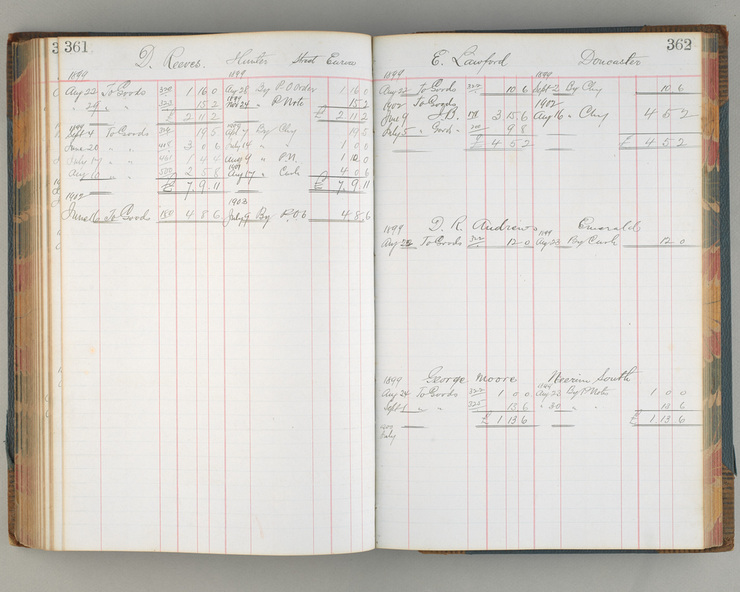 361
D. Reeves. Hunter Street Euroa
1899 1899
Aug 22 To Goods 1 16 0 Aug 28 By P.O Order 1 16 0
" 29 " " 322 15 2 " P Note 15 2
£ 2 11 2 £ 2 11 2
Sept 4 To Goods 19 5 By Chq 19 5
June 20 " " 419 3 0 6 July 14 " 1 0 0
July 17 " " 461 1 4 4 Aug 9 " P.N. 1 10 0
Aug 10 " 2 5 8 Aug 17 " Cash 4 0 6
£ 7. 9. 11 £ 7. 9. 11
1902 1903
June 16 To Goods 4 8 6 July 9 By P.O.O 4 8 6
362
E. Lawford Doncaster
1899 1899
Aug 22 To Goods 322 10 6 Sept 2 By Chq 10 6
1902 To Goods 1902
June 9 " 3 15 6 Aug 16 " Chq 4 5 2
July 5 " Goods 9 8
£ 4 5 2 £ 4 5 2
1899 D. R. Andrews Emerald
1899
Aug 22 To Goods 322 12 0 Aug 23 By Cash 12 0
1899 George Moore Neerim South
1899
Aug 24 To Goods 322 1 0 0 Aug 23 By P Notes 1 0 0
Sept 1 " " 325 13 6 " 30 " " 13 6
£ 1 13 6 £ 1 13 6